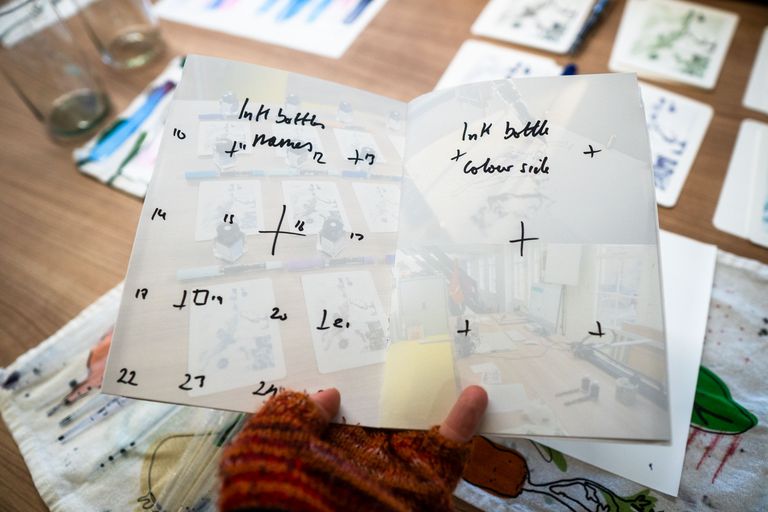 Ink bottles
names
10
11
12
13
14
15
16
17
19
20
22
23
24
Ink bottle
colour side